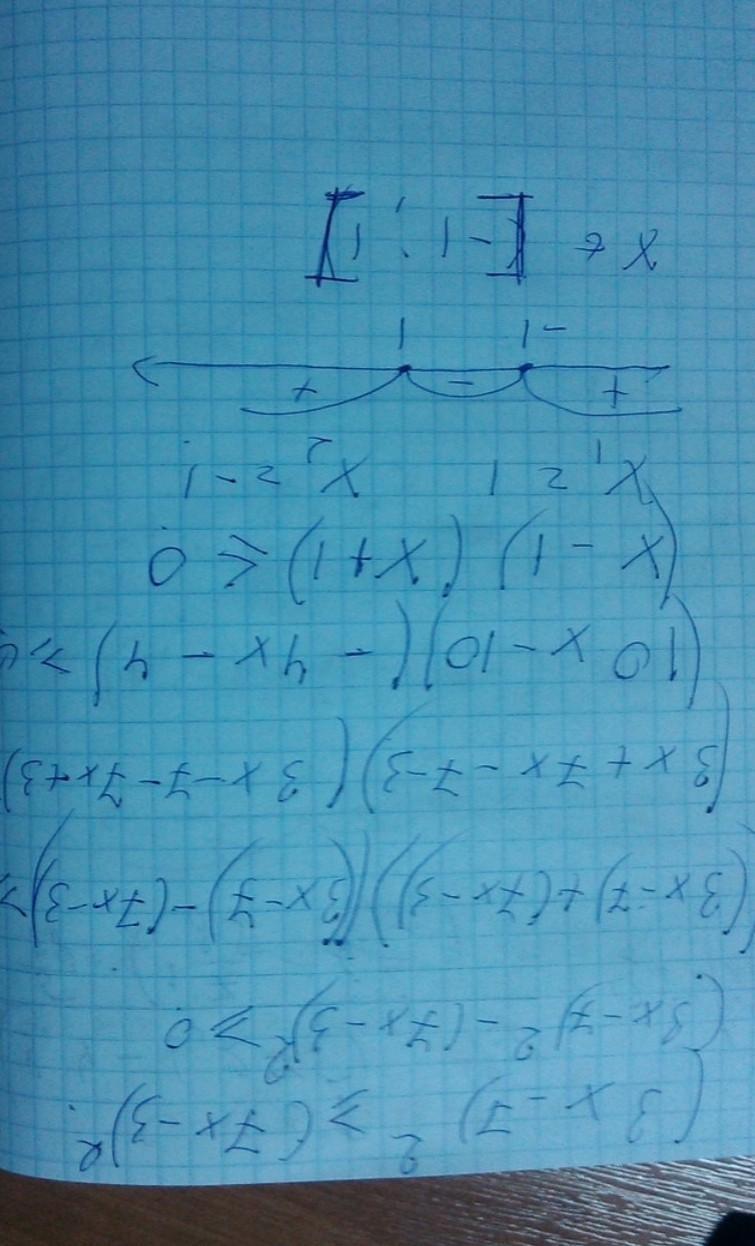 (3x-7)² ≥ (7x-3)²
(3x-7)² - (7x-3)² ≥ 0
((3x-7)+(7x-3))((3x-7)-(7x-3)) ≥
(3x+7x-7-3)(3x-7-7x+3)
(10x-10)(-4x-4) ≥ 0
(x-1)(x+1) ≤ 0
x₁ = 1 x₂ = -1
+ - +
-1 1
x ∈ [-1; 1]